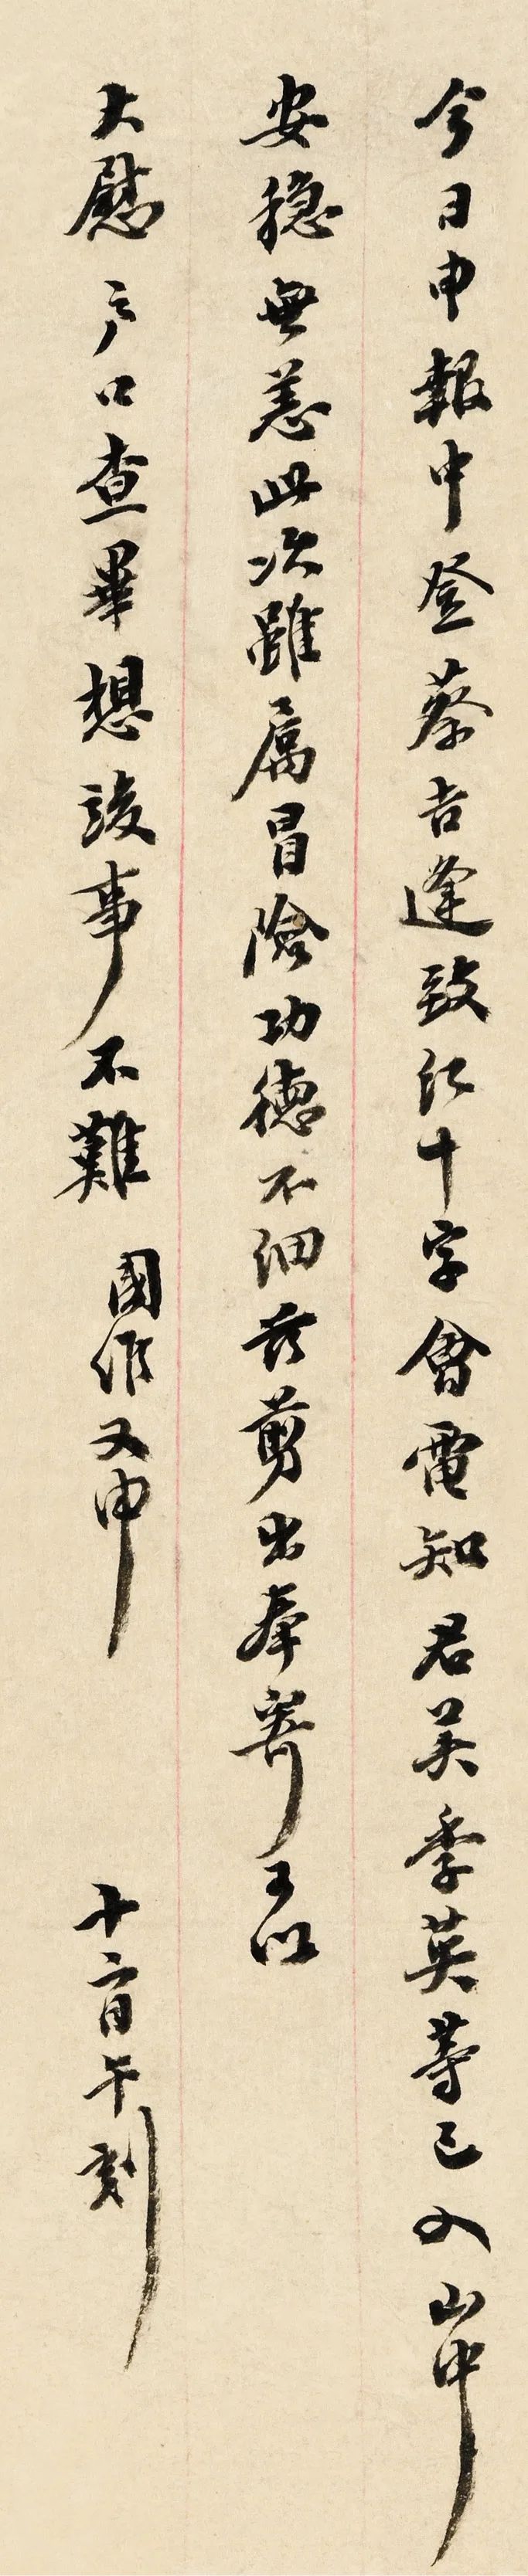 今日申報中登蔡吉逢致紅十字會電知君美季英等已入山中
安穩無恙此次雖屬冒險功德不細茲剪出奉寄可以
大慰 戶口查畢想竣事不難 國作又申 十二日午刻